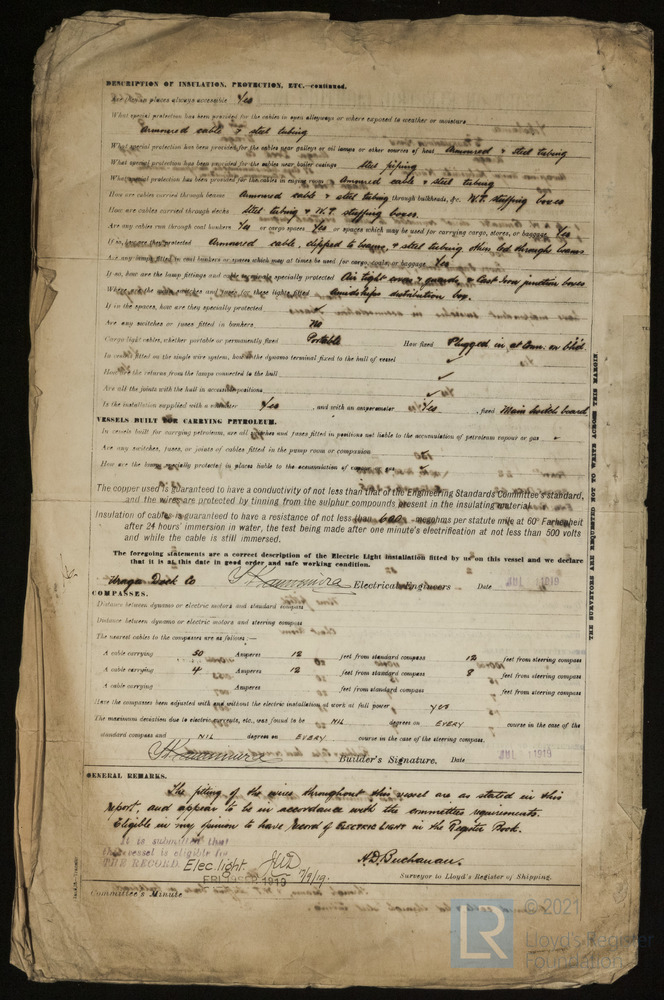 DESCRIPTION OF INSULATION, PROTECTION, ETC.—continued.
places always accessible Yes
What special protection has been provided for the cables in open alleyways or where exposed to weather or moisture
Armoured cable & steel tubing
What special protection has been provided for the cables near galleys or oil lamps or other sources of heat Armoured & steel tubing
What special protection has been provided for the cables near boiler casings Steel piping
What special protection has been provided for the cables in engine room Armoured cable & steel tubing
How are cables carried through beams Armoured cable & steel tubing through bulkheads, &c. W.T. stuffing boxes
How are cables carried through decks Steel tubing & W.T. stuffing boxes.
Are any cables run through coal bunkers Yes or cargo spaces Yes or spaces which may be used for carrying cargo, stores, or baggage Yes
If so, how are they protected Armoured cable, clipped to beams, & steel tubing through beams
Are any lamps fitted in coal bunkers or spaces which may at times be used for cargo, coals, or baggage Yes
If so, how are the lamp fittings and cable terminals specially protected Air tight & guards, & Cast Iron junction boxes
Where are the switches and fuses for these lights fitted Amidships distribution box.
If in the spaces, how are they specially protected ✓
Are any switches or fuses fitted in bunkers No
Cargo light cables, whether portable or permanently fixed Portable How fixed Plugged in at
In vessels fitted on the single wire system, how is the dynamo terminal fixed to the hull of vessel ✓
How are the returns from the lamps connected to the hull ✓
Are all the joints with the hull in accessible positions ✓
Is the installation supplied with a voltmeter Yes, and with an amperemeter Yes, fixed Main Switch board
VESSELS BUILT FOR CARRYING PETROLEUM.
In vessels built for carrying petroleum, are all switches and fuses fitted in positions not liable to the accumulation of petroleum vapour or gas
Are any switches, fuses, or joints of cables fitted in the pump room or companion
How are the lamps specially protected in places liable to the accumulation of vapour or gas
The copper used is guaranteed to have a conductivity of not less than that of the Engineering Standards Committee's standard,
and the wires are protected by tinning from the sulphur compounds present in the insulating material.
Insulation of cables is guaranteed to have a resistance of not less than 600 megohms per statute mile at 60° Farhenheit
after 24 hours' immersion in water, the test being made after one minute's electrification at not less than 500 volts
and while the cable is still immersed.
The foregoing statements are a correct description of the Electric Light installation fitted by us on this vessel and we declare
that it is at this date in good order and safe working condition.
Dock Co Electrical Engineers Date JUL 1919
COMPASSES.
Distance between dynamo or electric motors and standard compass
Distance between dynamo or electric motors and steering compass
The nearest cables to the compasses are as follows:—
A cable carrying 50 Amperes 12 feet from standard compass 12 feet from steering compass
A cable carrying 4 Amperes 12 feet from standard compass 8 feet from steering compass
A cable carrying Amperes feet from standard compass feet from steering compass
Have the compasses been adjusted with and without the electric installation at work at full power yes
The maximum deviation due to electric currents, etc., was found to be NIL degrees on EVERY course in the case of the
standard compass and NIL degrees on EVERY course in the case of the steering compass.
Builder's Signature. Date JUL 1919
GENERAL REMARKS.
The fitting of the wires throughout this vessel are as stated in this
report, and appear to be in accordance with the committee requirements.
Eligible in my opinion to have record of ELECTRIC LIGHT in the Register Book.
It is submitted that
this vessel is eligible for
THE RECORD. Elec. light. JWD 7/9/19.
FRI. 1919
A.D. Buchanan.
Surveyor to Lloyd's Register of Shipping.
Committee's Minute
THE SURVEYORS ARE REQUESTED NOT TO WRITE ACROSS THIS MARGIN.
LR
© 2021
Lloyd's Register
Foundation